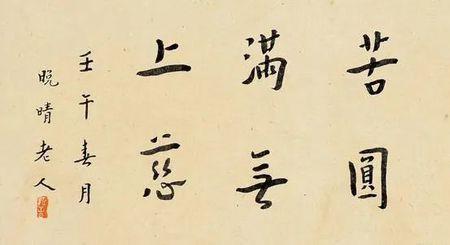 苦圓
滿無
上慈
壬午春月
晚晴老人